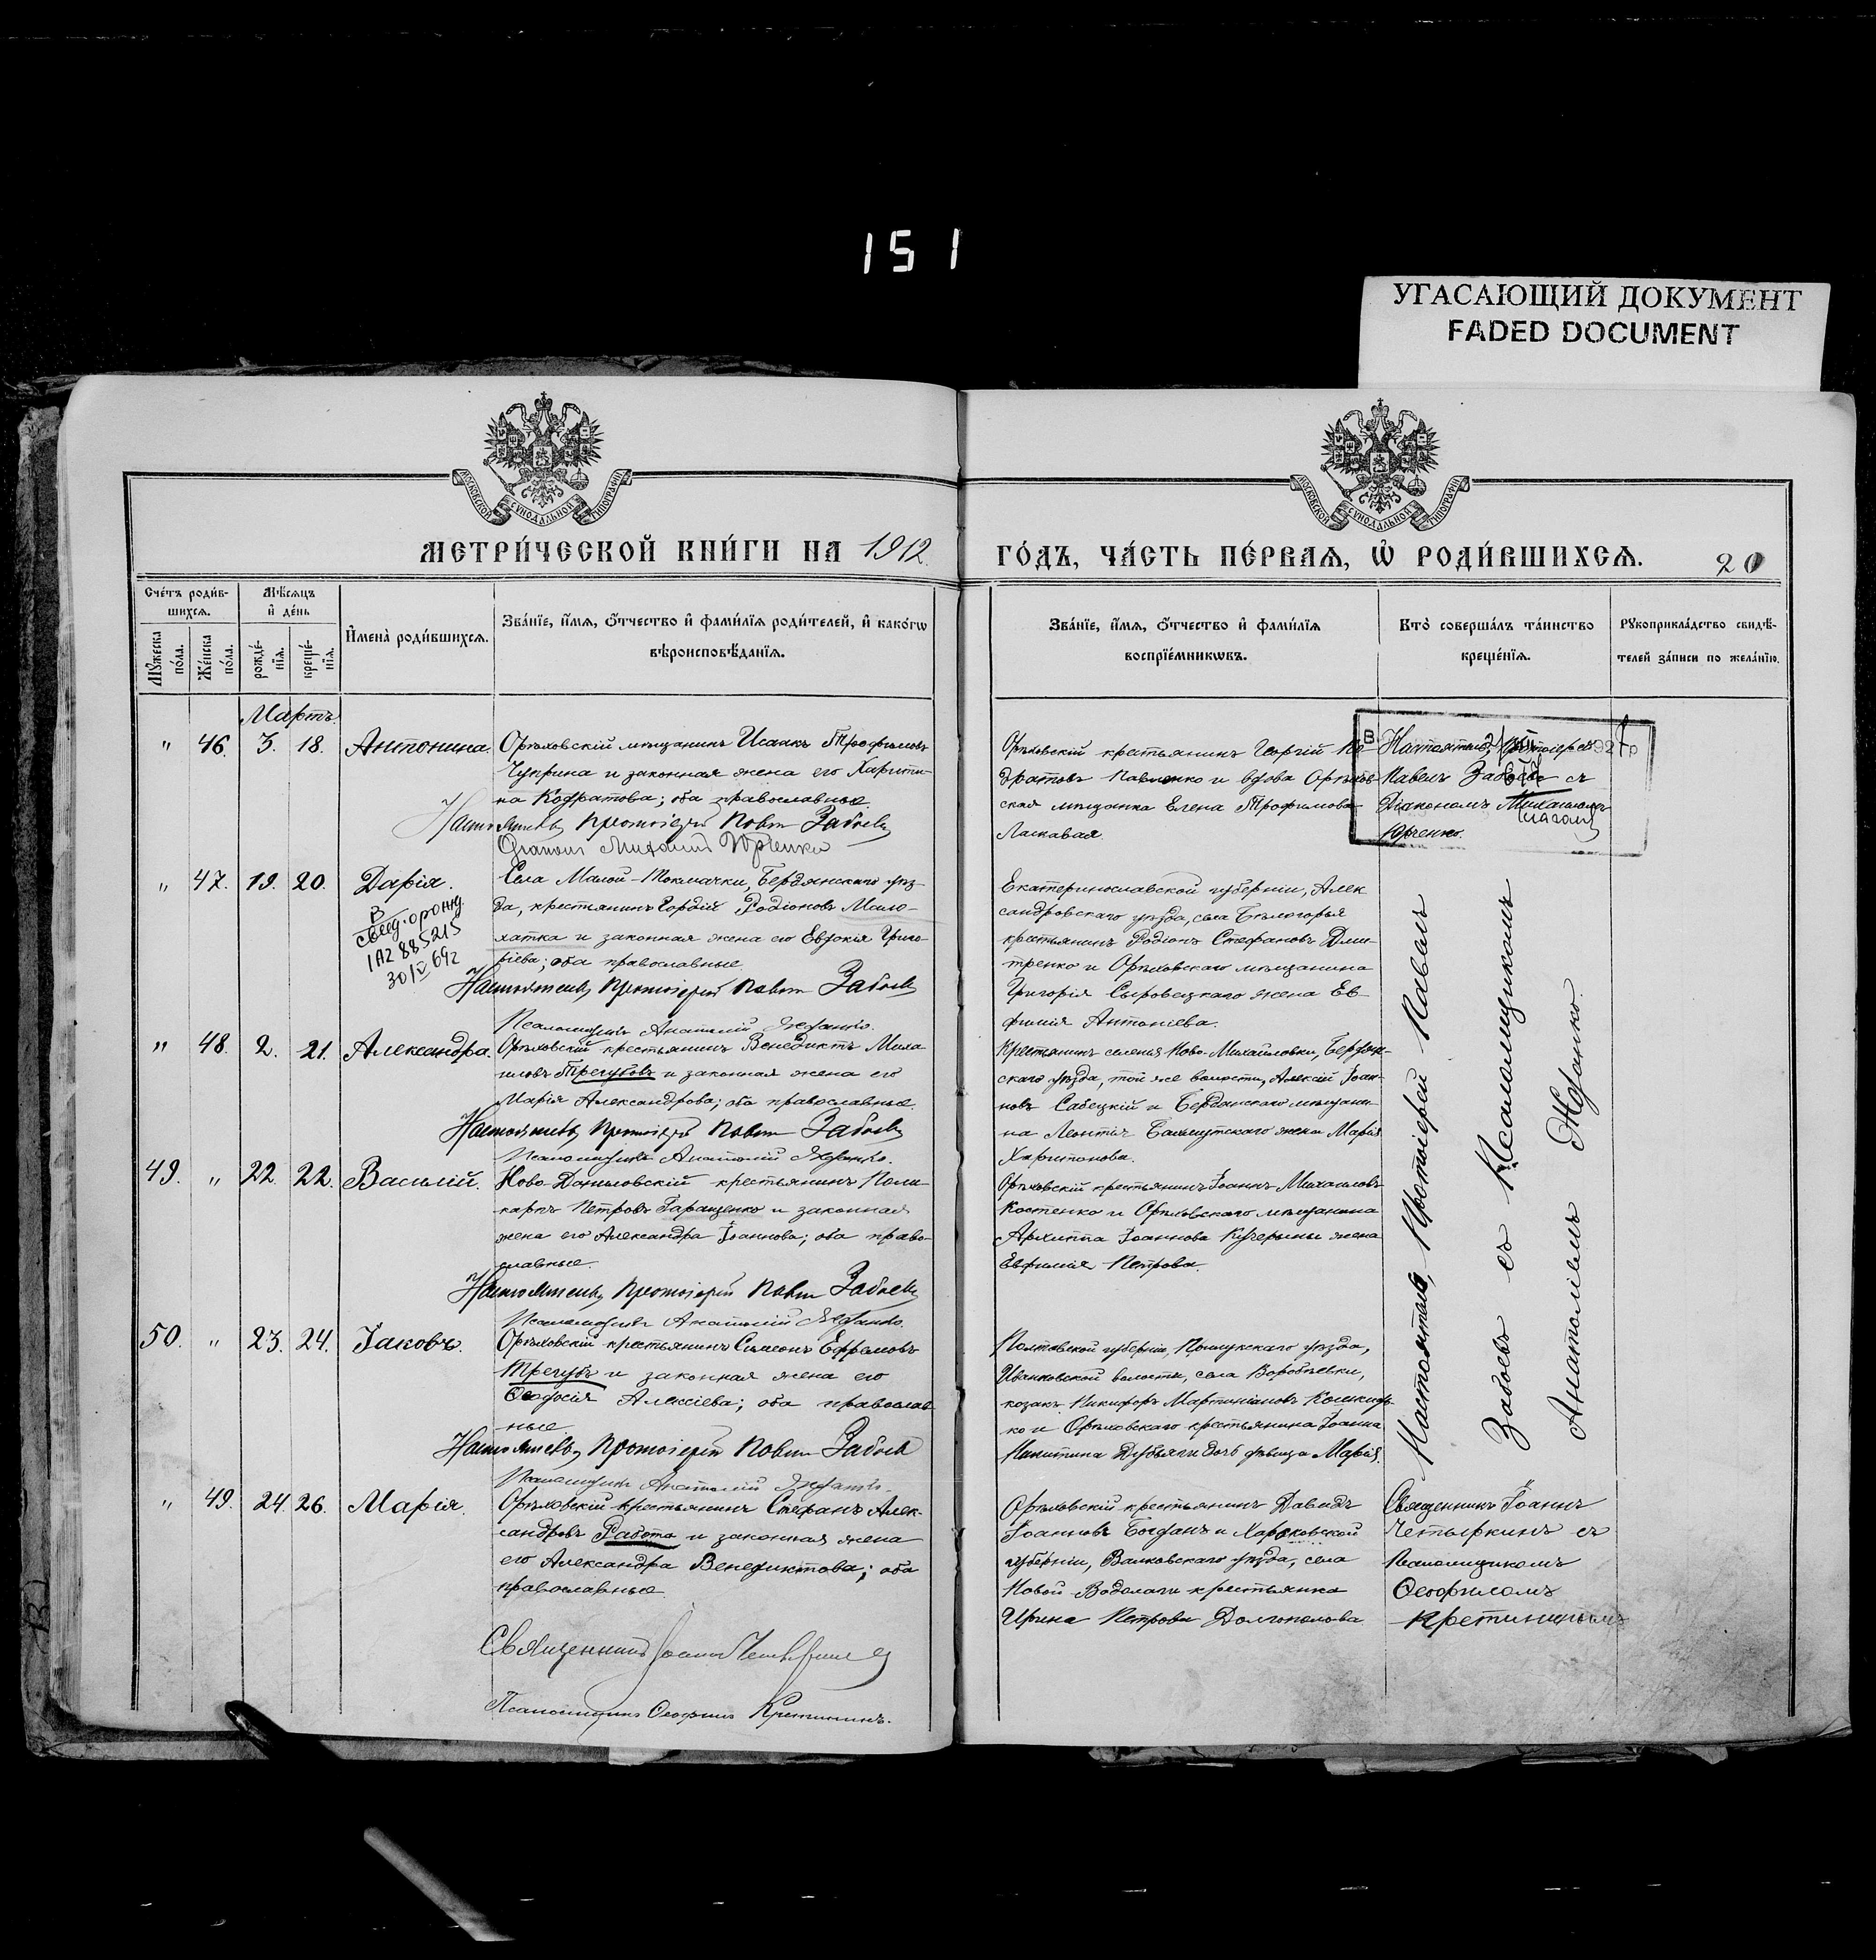 151
УГАСАЮЩИЙ ДОКУМЕНТ
FADED DOCUMENT
МОСКОВСКОЙ СУНОДАЛЬНОЙ ТИПОГРАФІИ
МОСКОВСКОЙ СУНОДАЛЬНОЙ ТИПОГРАФІИ
МЕТРИ́ЧЕСКОЙ КНИ́ГИ НА 1912
ГО́ДЪ, ЧА́СТЬ ПЕ́РВАѦ, Ѡ҆ РОДИ́ВШИХСѦ. 20
Сче́тъ роди́вшихсѧ.
Мꙋ́жеска по́ла.
Же́нска по́ла.
Мѣ́сѧцъ и҆ де́нь
рожде́нїѧ.
креще́нїѧ.
И҆мена̀ роди́вшихсѧ.
Зва́нїе, и҆́мѧ, ѻ҆́тчество и҆ фами́лїѧ роди́телей, и҆ како́гѡ
вѣроисповѣ́данїѧ.
Зва́нїе, и҆́мѧ, ѻ҆́тчество и҆ фами́лїѧ
воспрїе́мникѡвъ.
Кто̀ соверша́лъ та́инство
креще́нїѧ.
Рꙋкоприкла́дство свидѣ́-
телей за́писи по жела́нїю.
Мартъ.
" 46. 3. 18. Антонина.
Орѣховскій мѣщанинъ Исаакъ Трофимовъ
Чуприна и законная жена его Харити-
на Кодратова; оба православные.
Настоятель Протоіерей Павелъ Забоевъ
Діаконъ Михаилъ Юрченко
Орѣховскій крестьянинъ Георгій Ко-
дратовъ Павленко и вдова Орѣхов-
ская мѣщанка Елена Трофимова
Ласкавая.
Настоятель, Протоіерей
Павелъ Забоевъ съ
Діакономъ Михаиломъ
Юрченко.
" 47. 19. 20. Дарія.
В
свед. о рожд.
1А2 885215
30/V 64г
Села Малой-Токмачки, Бердянскаго уѣз-
да, крестьянинъ Гордій Родіоновъ Мило-
хатка и законная жена его Евдокія Григо-
ріева; оба православные
Настоятель Протоіерей Павелъ Забоевъ
Псаломщикъ Анатолій Жданко.
Екатеринославской губерніи, Алек-
сандровскаго уѣзда, села Бѣлогорья
крестьянинъ Родіонъ Стефановъ Дми-
тренко и Орѣховскаго мѣщанина
Григорія Сыровецкаго жена Ев-
фимія Антоніева.
" 48. 2. 21. Александра.
Орѣховскій крестьянинъ Венедиктъ Миха-
иловъ Трегубовъ и законная жена его
Марія Александрова; оба православные.
Настоятель Протоіерей Павелъ Забоевъ
Псаломщикъ Анатолій Жданко.
Крестьянинъ селенія Ново-Михайловки, Бердян-
скаго уѣзда, той же волости, Алексій Іоан-
новъ Сабецкій и Бердянскаго мѣщани-
на Леонтія Бахмутскаго жена Марія
Харитонова.
49. " 22. 22. Василій.
Ново-Даниловскій крестьянинъ Поли-
карпъ Петровъ Гаращенко и законная
жена его Александра Іоаннова; оба право-
славные.
Настоятель Протоіерей Павелъ Забоевъ
Псаломщикъ Анатолій Жданко.
Орѣховскій крестьянинъ Іоаннъ Михаиловъ
Костенко и Орѣховскаго мѣщанина
Архиппа Іоаннова Кучерины жена
Евфимія Петрова.
50. " 23. 24. Іаковъ.
Орѣховскій крестьянинъ Симеонъ Ефремовъ
Трегубъ и законная жена его
Ѳеодосія Алексіева; оба православ-
ные
Настоятель Протоіерей Павелъ Забоевъ
Псаломщикъ Анатолій Жданко.
Полтавской губерніи, уѣзда,
Иванковской волости, села Воробьевки,
козакъ Никифоръ Мартиніановъ
ко и Орѣховскаго крестьянина Іоанна
Никитина дочь дѣвица Марія.
Настоятель, Протоіерей Павелъ
Забоевъ съ Псаломщикомъ
Анатоліемъ Жданко.
" 49. 24. 26. Марія.
Орѣховскій крестьянинъ Стефанъ Алек-
сандровъ Работа и законная жена
его Александра Венедиктова; оба
православные.
Священникъ Іоаннъ Четыркинъ
Псаломщикъ Ѳеофилъ Кретининъ.
Орѣховскій крестьянинъ Давидъ
Іоанновъ Богданъ и Харьковской
губерніи, Валковскаго уѣзда, села
Новой Водолаги крестьянка
Ирина Петрова Долгополова
Священникъ Іоаннъ
Четыркинъ съ
Псаломщикомъ
Ѳеофиломъ
Кретининымъ